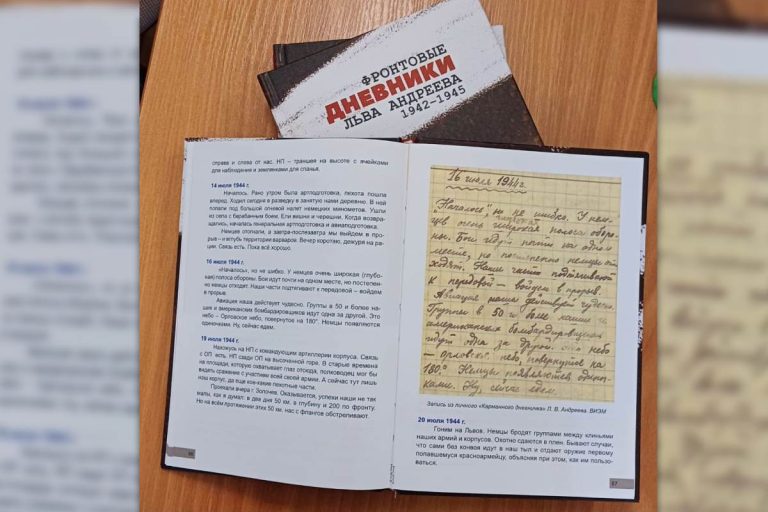 ФРОНТОВЫЕ
ДНЕВНИКИ
ЛЬВА АНДРЕЕВА
1942–1945
справа и слева от нас. НП – траншея на высоте с ячейками
для наблюдения и землянками для спанья.
14 июля 1944 г.
Началось. Рано утром была артподготовка, пехота пошла
вперед. Ходил сегодня в разведку в занятую нами деревню. В ней
попали под большой огневой налет немецких минометов. Ушли
из села с барабанным боем. Ели вишни и черешни. Когда возвра-
щались, началась генеральная артподготовка и авиаподготовка.
Немцев отопнали, а завтра-послезавтра мы выйдем в про-
рыв – и вглубь территории варваров. Вечер коротаю, дежуря на ра-
ции. Связь есть. Пока всё хорошо.
16 июля 1944 г.
«Началось», но не шибко. У немцев очень широкая (глубо-
кая) полоса обороны. Бои идут почти на одном месте, но постепен-
но немцы отходят. Наши части подтягивают к передовой – войдем
в прорыв.
Авиация наша действует чудесно. Группы в 50 и более на-
ших и американских бомбардировщиков идут одна за другой. Это
небо – Орловское небо, повернутое на 180°. Немцы появляются
одиночками. Ну, сейчас едем.
19 июля 1944 г.
Нахожусь на НП с командующим артиллерии корпуса. Связь
с ОП есть. НП сзади ОП на высоченной горе. В старые времена
на площади, которую охватывает глаз отсюда, полководец мог бы
видеть сражение с участием всей своей армии. А сейчас тут лишь
наш корпус, да еще кое-какие пехотные части.
Проехали вчера г. Золочев. Оказывается, успехи наши не так
малы, как я думал: в два дня 50 км. в глубину и 200 по фронту.
Но на всём протяжении этих 50 км. нас с флангов обстреливают.
16 июля 1944 г.
"Началось", но не шибко. У нем-
цев очень широкая полоса оборо-
ны. Бои идут почти на одном
месте, но постепенно немцы от-
ходят. Наши части подтягивают
к передовой – войдем в прорыв.
Авиация наша действует чудесно.
Группы в 50 и более наших и
американских бомбардировщиков
идут одна за другой. Это небо
– орловское небо, повернутое на
180°. Немцы появляются одиноч-
ками. Ну, сейчас едем.
Запись из личного «Карманного дневника» Л. В. Андреева. ВИЗМ
20 июля 1944 г.
Гоним на Львов. Немцы бродят группами между клиньями
наших армий и корпусов. Охотно сдаются в плен. Бывают случаи,
что сами без конвоя идут в наш тыл и отдают оружие первому
попавшемуся красноармейцу, объясняя при этом, как им пользо-
ваться.
57